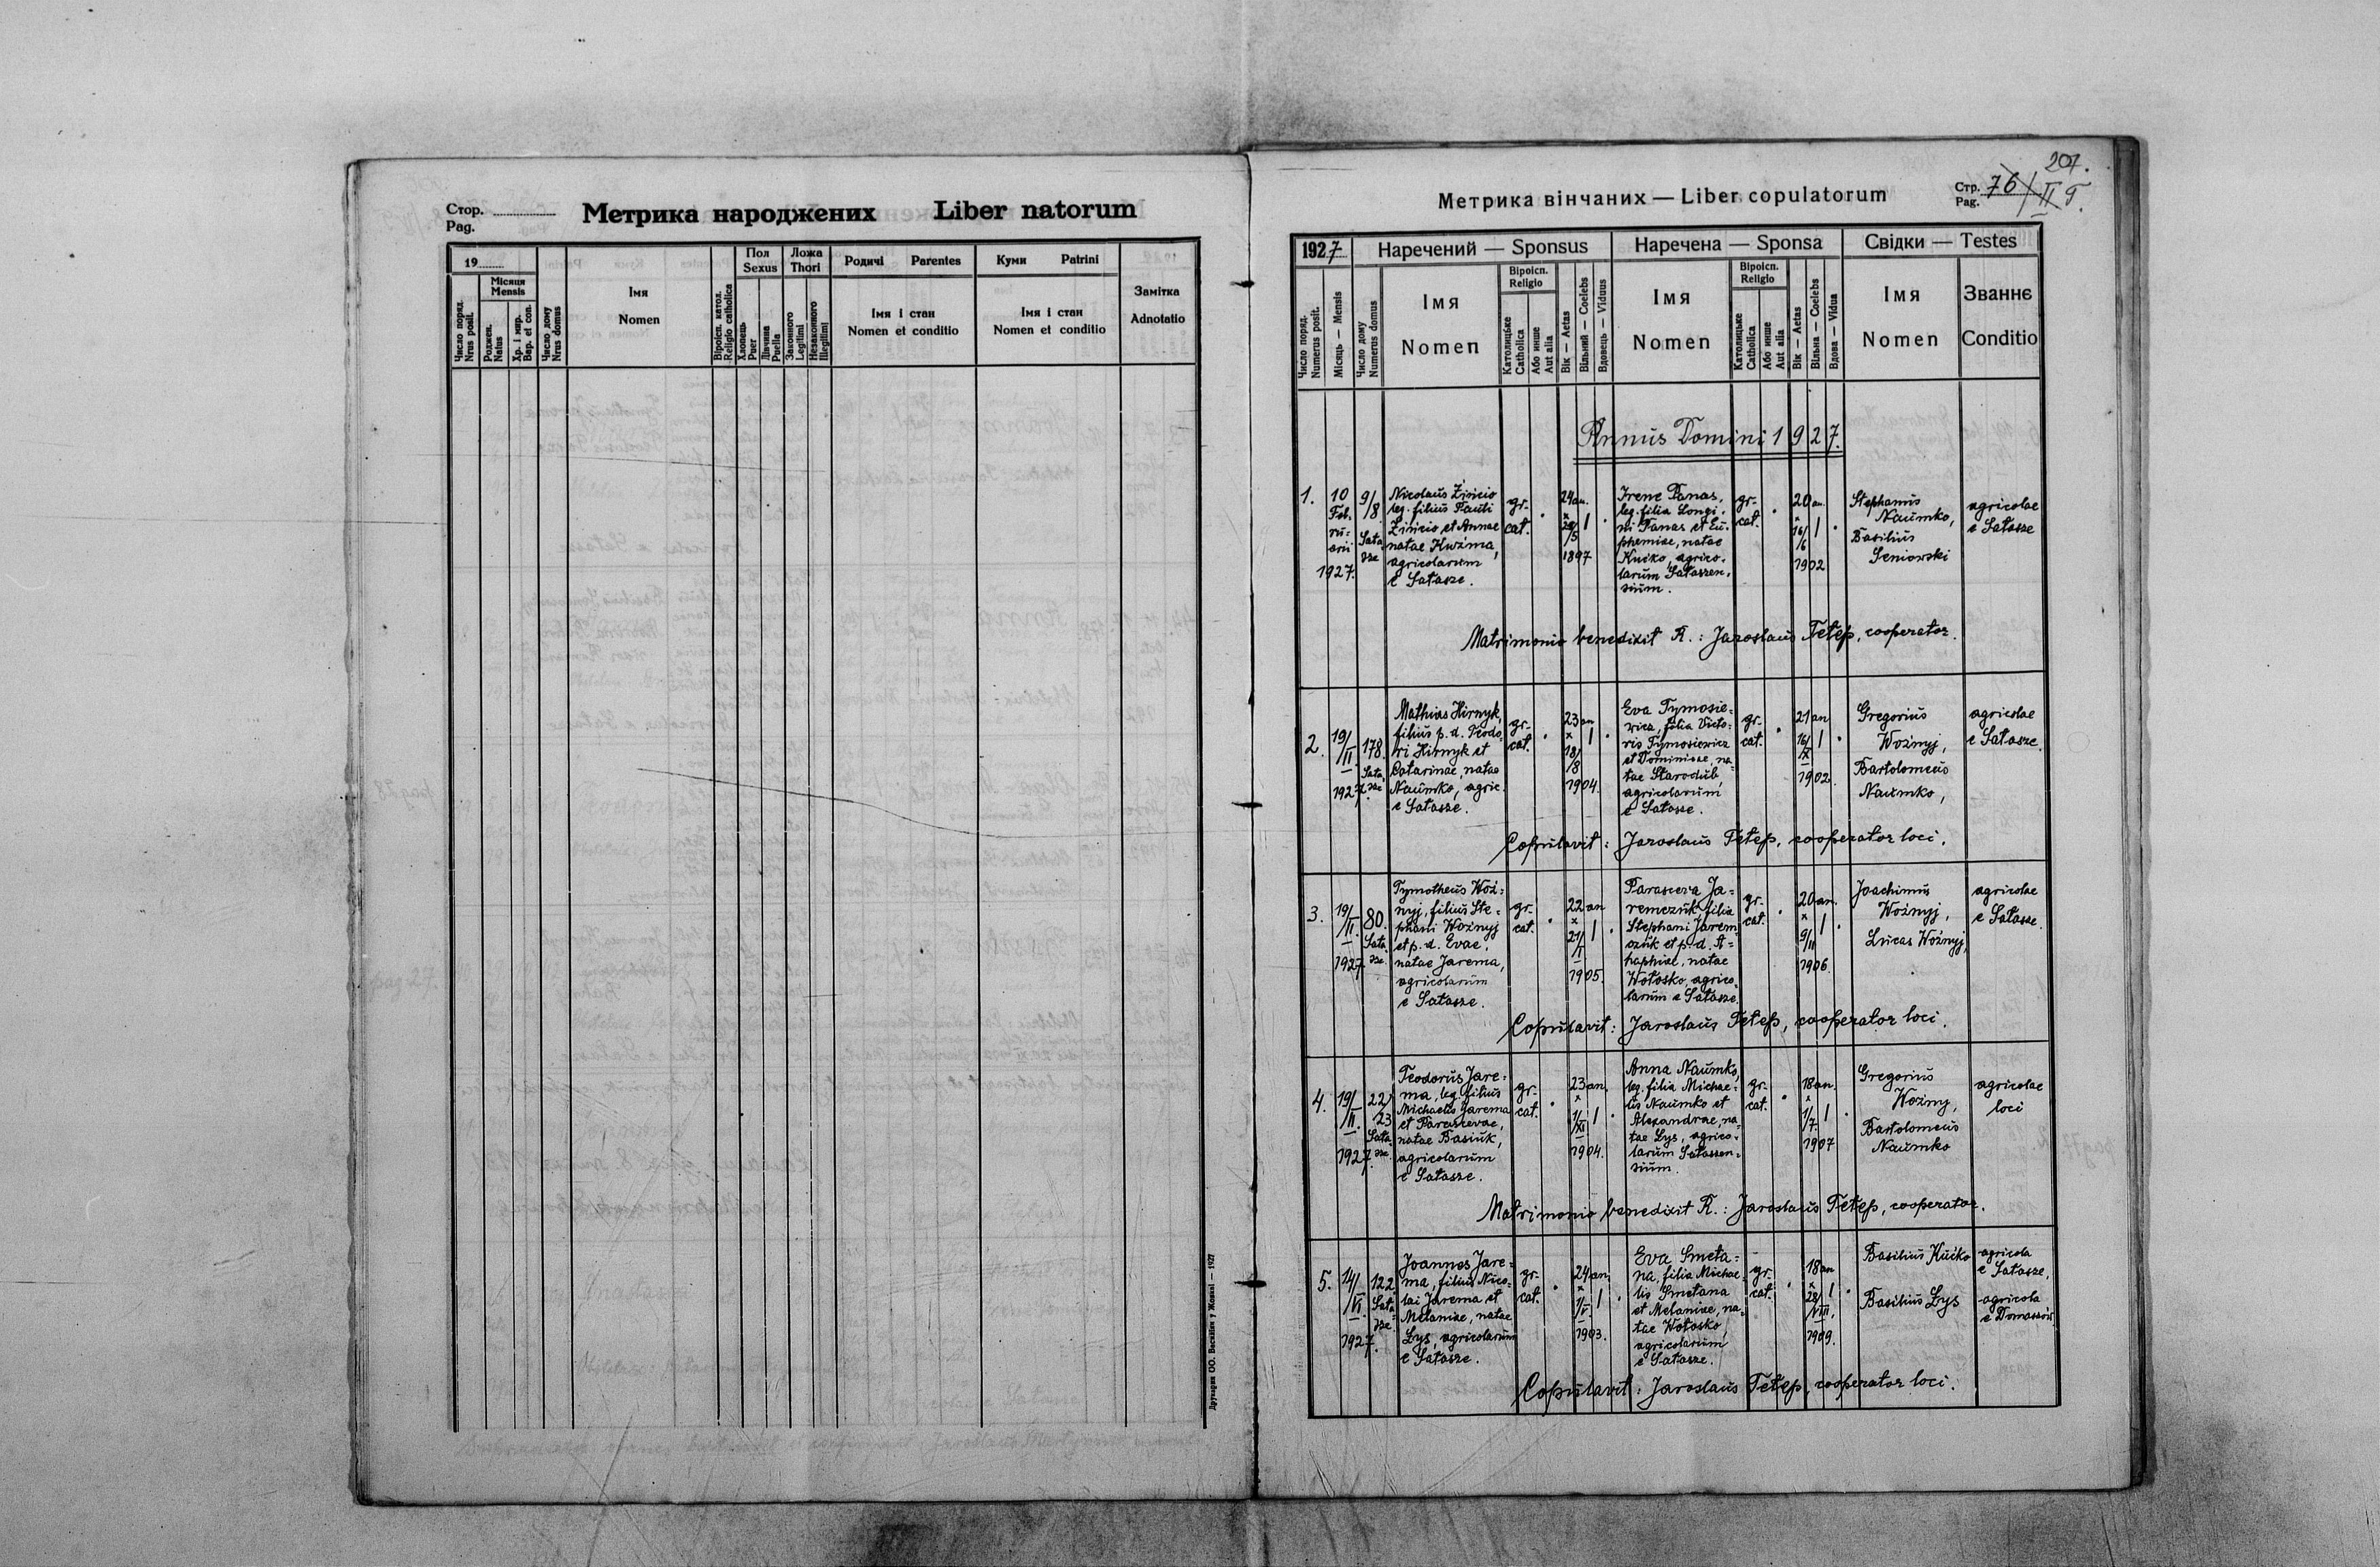 Стор.
Pag.
Метрика народжених Liber natorum
19
Число поряд.
Nrus posit.
Місяця
Mensis
Роджен.
Natus
Хр. і мир.
Bap. et con.
Число дому
Nrus domus
Імя
Nomen
Віроісп. катол.
Religio catholica
Пол
Sexus
Хлопець
Puer
Дівчина
Puella
Ложа
Thori
Законного
Legitimi
Незаконного
Illegitimi
Родичі Parentes
Імя і стан
Nomen et conditio
Куми Patrini
Імя і стан
Nomen et conditio
Замітка
Adnotatio
Друкарня ОО. Василіян у Жовкві — 1927
207.
Метрика вінчаних — Liber copulatorum
Стр.
Pag.
76
1927
Наречений — Sponsus
Наречена — Sponsa
Свідки — Testes
Число поряд.
Numerus posit.
Місяць — Mensis
Число дому
Numerus domus
Імя
Nomen
Віроісп.
Religio
Католицьке
Catholica
Або инше
Aut alia
Вік — Aetas
Вільний — Coelebs
Вдовець — Viduus
Імя
Nomen
Віроісп.
Religio
Католицьке
Catholica
Або инше
Aut alia
Вік — Aetas
Вільна — Coelebs
Вдова — Vidua
Імя
Nomen
Званнє
Conditio
Annus Domini 1927.
1.
10
Feb.
ru=
arii
1927.
9/8
Sata
sze
Nicolaus Zinicio
leg. filius Pauli
Zinicio et Annae
natae Kuźma,
agricolarum
e Satasze.
gr.
cat.
24 an.
×
29/5
1897
1
Irene Panas,
leg. filia Longi.
ni Panas et Eu.
phemiae, natae
Kućko, agrico.
larum Sataszen.
sium.
gr.
cat.
20 an.
×
16/6
1902
1
Stephanus
Naumko,
Basilius
Seniowski
agricolae
e Satasze
Matrimonio benedixit R.: Jaroslaus Tetep, cooperator.
2.
19/II
1927.
178.
Sata
sze
Mathias Hirnyk,
filius p. d. Teodo=
ri Hirnyk et
Catarinae, natae
Naumko, agric.
e Satasze.
gr.
cat.
23 an
×
18/8
1904.
1
Eva Tymosie=
wicz, filia Victo=
ris Tymosiewicz
et Dominicae, na=
tae Starodub
agricolarum
e Satasze.
gr.
cat.
21 an
16/IX
1902.
1
Gregorius
Woźnyj,
Bartolomeus
Naumko,
agricolae
e Satasze.
Copulavit: Jaroslaus Tetep, cooperator loci.
3.
19/II
1927
80.
Sata
sze.
Tymotheus Woź=
nyj, filius Ste=
phani Woźnyj
et p. d. Evae,
natae Jarema,
agricolarum
e Satasze.
gr.
cat.
22 an
×
21/I
1905.
1
Parasceva Ja=
remczuk filia
Stephani Jarem
czuk et p. d. A=
haphiae, natae
Wołosko, agrico=
larum e Satasze.
gr.
cat.
20 an.
×
9/II
1906.
1
Joachimus
Woźnyj,
Lucas Woźnyj,
agricolae
e Satasze.
Copulavit: Jaroslaus Tetep, cooperator loci.
4.
19/II.
1927.
22/23
Sata=
sze.
Teodorus Jare=
ma, leg. filius
Michaelis Jarema
et Parascevae,
natae Basiuk,
agricolarum
e Satasze.
gr.
cat.
23 an.
×
1/XI
1904.
1
Anna Naumko,
leg. filia Michae=
lis Naumko et
Alexandrae, na=
tae Łys, agrico=
larum Sataszen=
sium.
gr.
cat.
18 an.
×
1/7.
1907
1
Gregorius
Woźny,
Bartolomeus
Naumko
agricolae
loci
Matrimonio benedixit R.: Jaroslaus Tetep, cooperator.
5.
14/VI.
1927.
122.
Sata=
sze.
Joannes Jare=
ma, filius Nico=
lai Jarema et
Melaniae, natae
Łys, agricolarum
e Satasze.
gr.
cat.
24 an.
×
1/V
1903.
1
Eva Smeta=
na, filia Michae=
lis Smetana
et Melaniae, na=
tae Wołosko,
agricolarum
e Satasze.
gr.
cat.
18 an
×
28/VIII.
1909.
1
Basilius Kućko
Basilius Łys
agricola
e Satasze,
agricola
e Domaszów
Copulavit: Jaroslaus Tetep, cooperator loci.